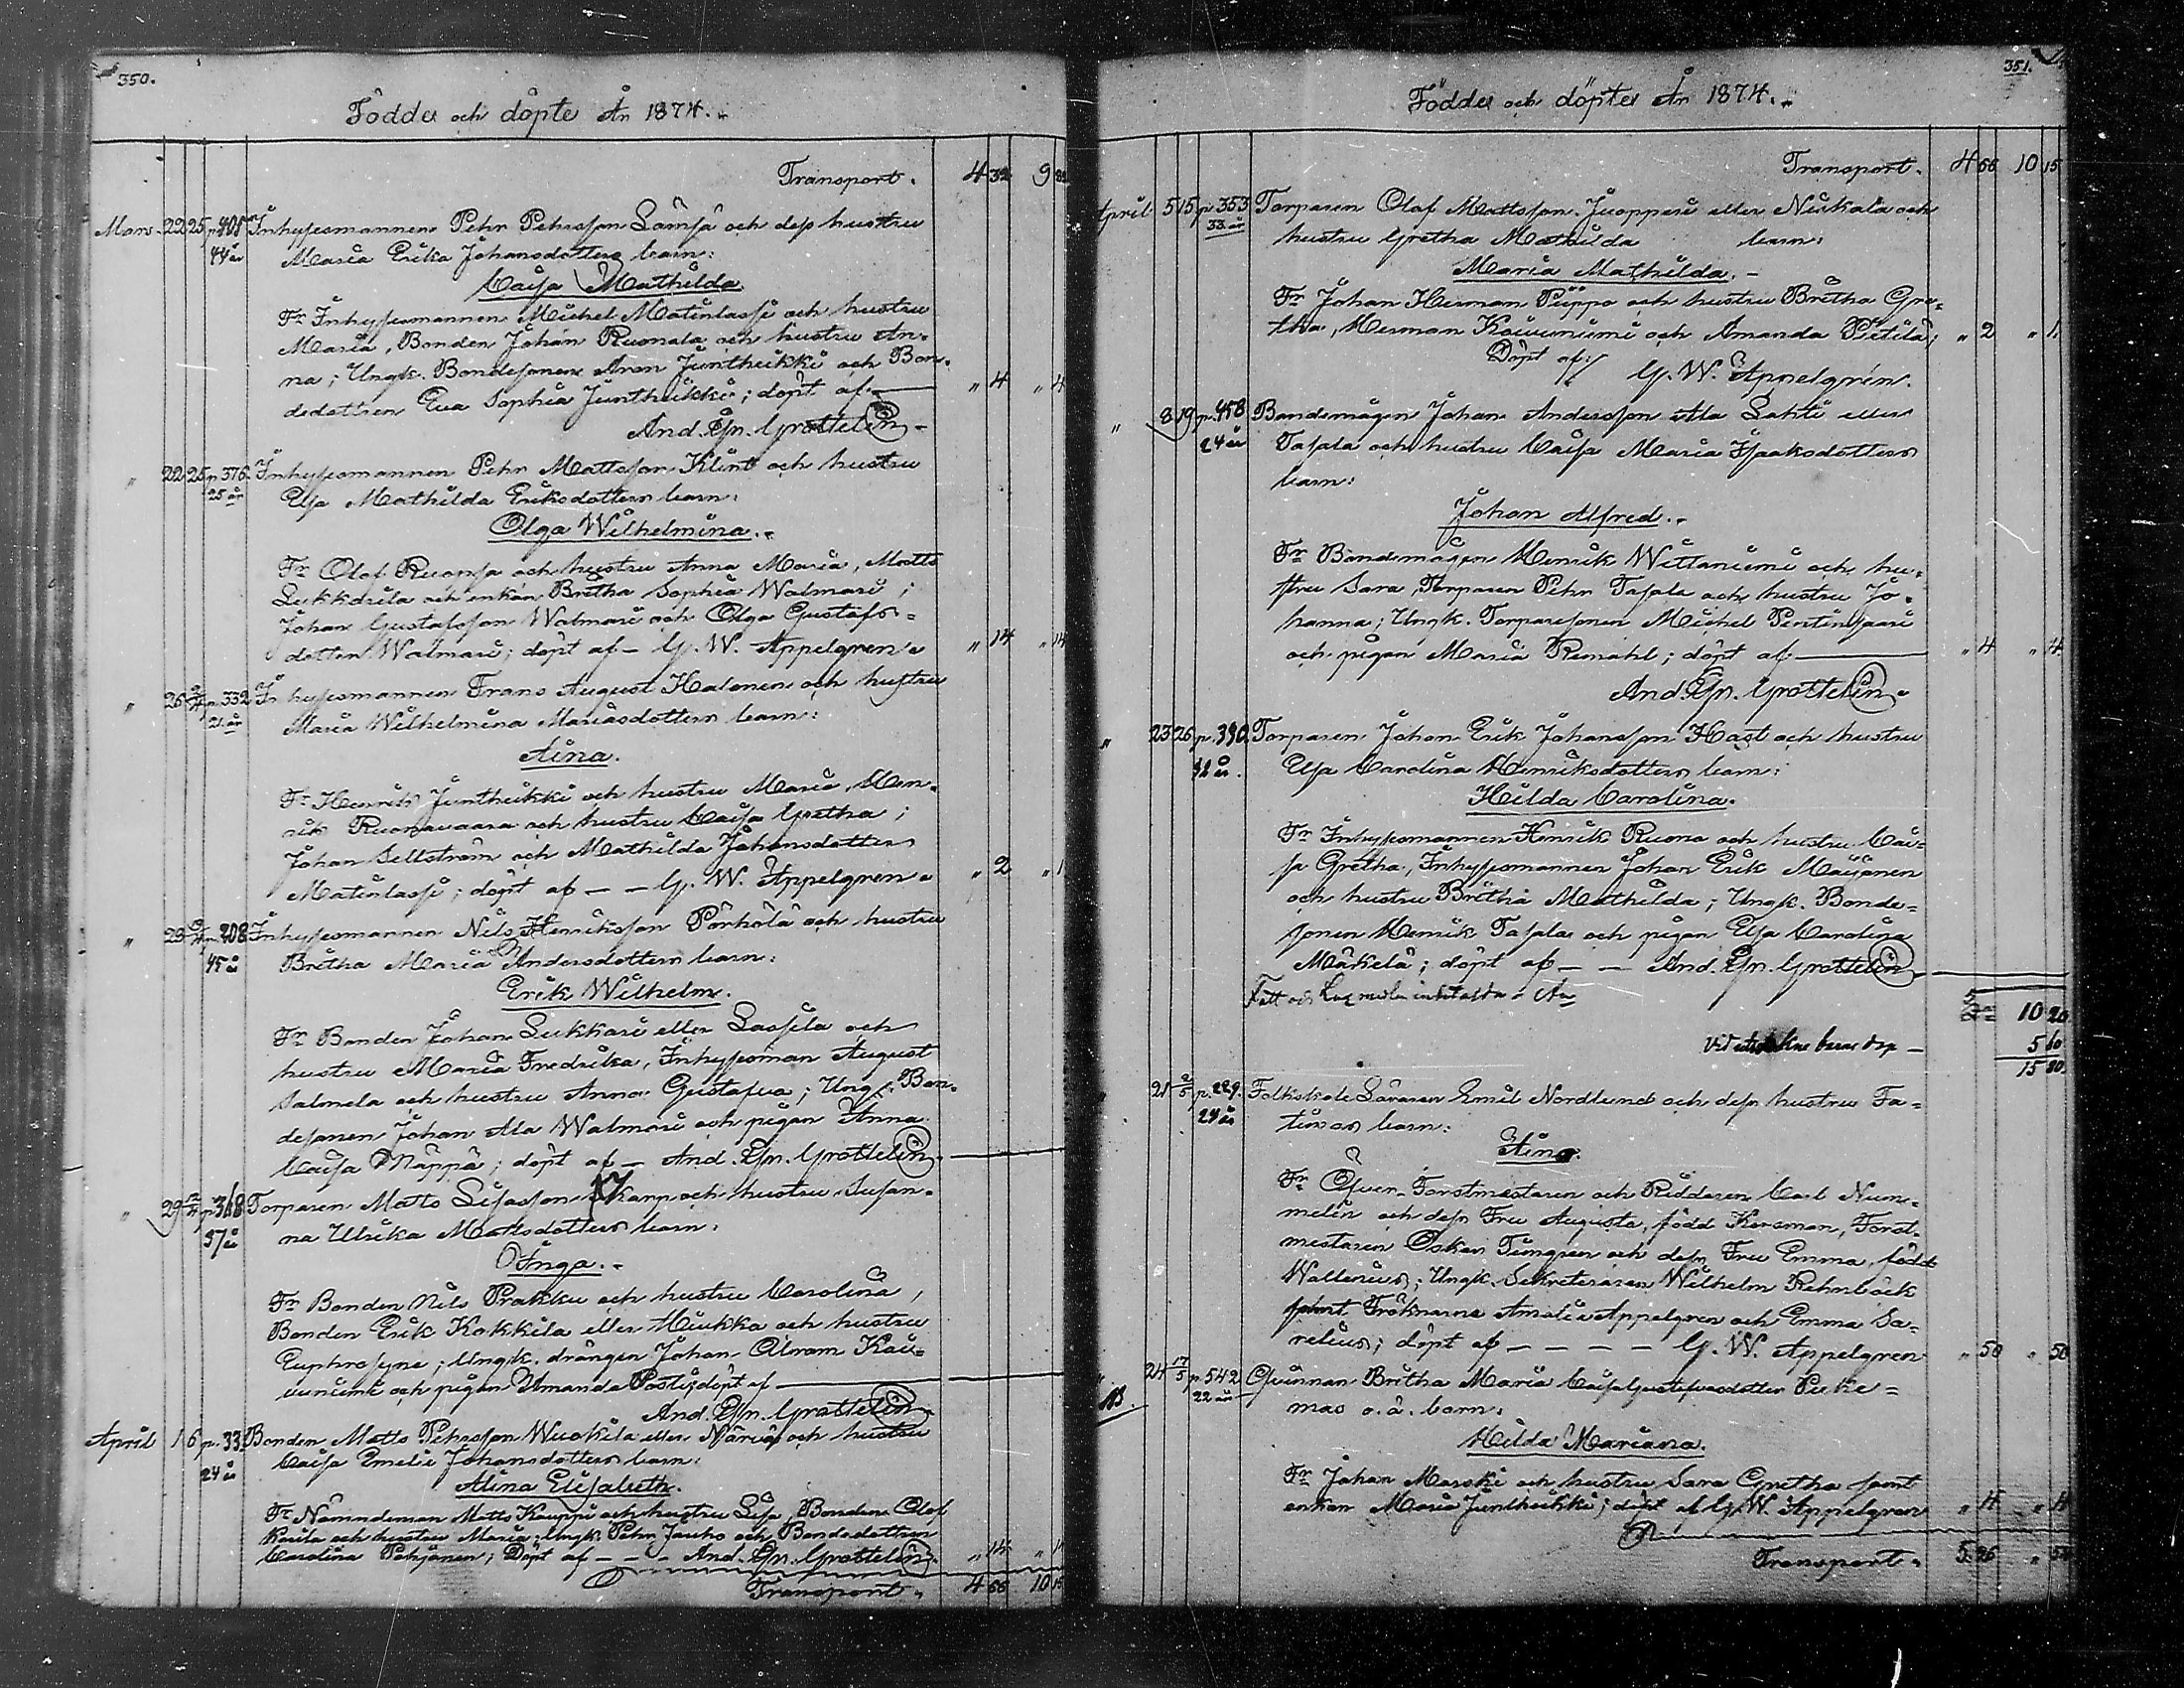 350.
Födde och döpte År 1874.
Transport. 4 32 9 82
Mars 22 25 p. 408 Inhysesmannen Pehr Pehrsson Lämsä och dess hustru
44 år Maria Erika Johansdotters barn:
Caisa Mathilda
Fr Inhysesmannen Michel Matinlassi och hustru
Maria, Bonden Johan Ruonala och hustru An-
na; Ungk. Bondesonen Aron Junthikki och Bon-
dedottren Eva Sophia Junthikki; döpt af " 4 " 4
And. Gr. Grottelin
" 22 25 p. 376. Inhysesmannen Pehr Mattsson Klint och hustru
25 år Elsa Mathilda Eriksdotters barn:
Olga Wilhelmina.
Fr Olof Ruonsa och hustru Anna Maria, Matts
och enkan Britha Sophia Walmari;
Johan Gustafsson Walmari och Olga Gustafs-
dotter Walmari; döpt af – G. W. Appelgren " 14 " 14
" 26 p. 332 Inhysesmannen Frans August Halonen och hustru
21 år Maria Wilhelmina Mariasdotters barn:
Aina.
Fr Henrik Junthikki och hustru Maria, Hen-
rik Ruonavaara och hustru Caisa Gretha;
Johan Sellström och Mathilda Johansdotter
Matinlassi; döpt af – – G. W. Appelgren " 2 " 1
" p. 208 Inhysesmannen Nils Henriksson Pörhölä och hustru
45 år Britha Maria Andersdotters barn:
Erik Wilhelm.
Fr Bonden Johan Lukkari eller Lassila och
hustru Maria Fredrika, Inhysesman August
Salmela och hustru Anna Gustafva; Ungk. Bon-
desonen Johan Ala Walmari och pigan Anna
Caisa Näppä; döpt af – And. Gr. Grottelin
" 29 p. 368 Torparen Matts Lisasson Karp och hustru Susan-
37 år na Ulrika Mattsdotters barn:
Inga.
Fr Bonden Nils Prakku och hustru Carolina,
Bonden Erik Kokkila eller Miukka och hustru
Euphrosyne; Ungk. drängen Johan Abram Kou-
vuniemi och pigan Amanda Posti; döpt af
And. Gr. Grottelin
April 1 6 p. 33 Bonden Matts Pehrsson Wuokila eller Närvä och hustru
24 år Caisa Emelie Johansdotters barn:
Alina Elisabeth.
Fr Nämndeman Matts Kauppi och hustru Lisa, Bonden Olof
och hustru Maria; Ungk. Pehr Jauho och Bondedottren
Carolina Pohjanen; Döpt af – – – And. Gr. Grottelin " 14 "
Transport. 4 66 10 15
351.
Födde och döpte År 1874.
Transport. 4 66 10 15
April 5 15 p. 353 Torparen Olof Mattsson Juopperi eller Niskala och
33 år hustru Gretha Mathilda barn:
Maria Mathilda.
Fr Johan Herman Piippo och hustru Britha Gre-
tha, Herman Kouvuniemi och Amanda Pietilä; " 2 " 1
Döpt af:/ G. W. Appelgrén.
" 8 19 p. 458 Bondemågen Johan Andersson Ala Lahti eller
24 år Tapala och hustru Caisa Maria Isaksdotters
barn:
Johan Alfred.
Fr Bondemågen Henrik Wittaniemi och hu-
stru Sara, Torparen Pehr Tapala och hustru Jo-
hanna; Ungk. Torparesonen Michel Penttinsaari
och pigan Maria Rimähl; döpt af " 4 " 4
And. Gr. Grottelin
" 23 26 p. 390 Torparen Johan Erik Johansson Hast och hustru
32 år Elsa Carolina Henriksdotters barn:
Hilda Carolina.
Fr Inhysesmannen Henrik Ruona och hustru Cai-
sa Gretha, Inhysesmannen Johan Erik Moijanen
och hustru Britha Mathilda; Ungk. Bonde-
sonen Henrik Tapala och pigan Elsa Carolina
Märkelä; döpt af – – And. Gr. Grottelin
10 20
5 60
15 80
21 p. 229. Folkskole Läraren Emil Nordlund och dess hustru Fa-
24 år timas barn:
Aino.
Fr Öfver-Forstmestaren och Riddaren Carl Num-
melin och dess Fru Augusta, född Kersman, Forst-
mestaren Oskar Timgren och dess Fru Emma, född
Wallenius; Ungk. Sekreteraren Wilhelm Rehnbäck
samt Fröknarna Amalia Appelgren och Emma Sa-
relius; döpt af – – – – G. W. Appelgren " 50 " 50
24 17/5 p. 542 Qvinnan Britha Maria Caisa Gustafvasdotter
22 år o.ä. barn:
Hilda Mariana.
Fr Johan Marski och hustru Sara Gretha samt
enkan Maria Junthikki; döpt af G. W. Appelgren " 4 " 4
Transport. 5 26